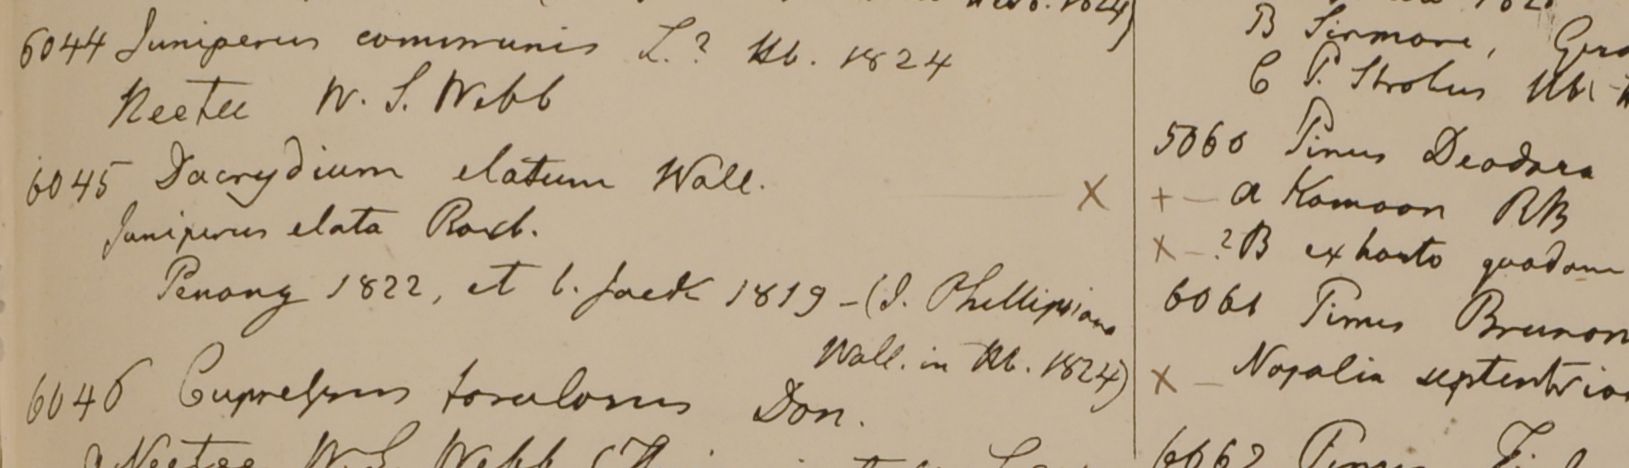 1824)
6044 Juniperus communis L.? Hb. 1824
Neetee W. S. Webb
6045 Dacrydium elatum Wall. X
Juniperus elata Roxb.
Penang 1822, et b. Jack 1819 - (J. Phillipsiana
Wall. in Hb. 1824)
6046 Cupressus torulosus Don.
Neetee W. S. Webb
B Sirmore,
C P. Strobus Hb.
5060 Pinus Deodara
+ - a Kamoon RB
X - ? B ex horto quodam
6061 Pinus Brunon
X - Napalia septentrion
6062 Pinus